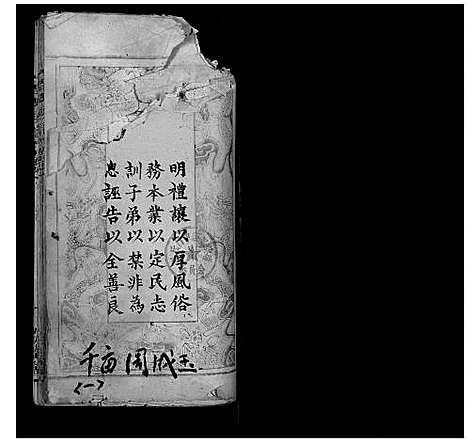 明禮讓以厚風俗
務本業以定民志
訓子弟以禁非為
息誣告以全善良
千畝 周成玉
(一)